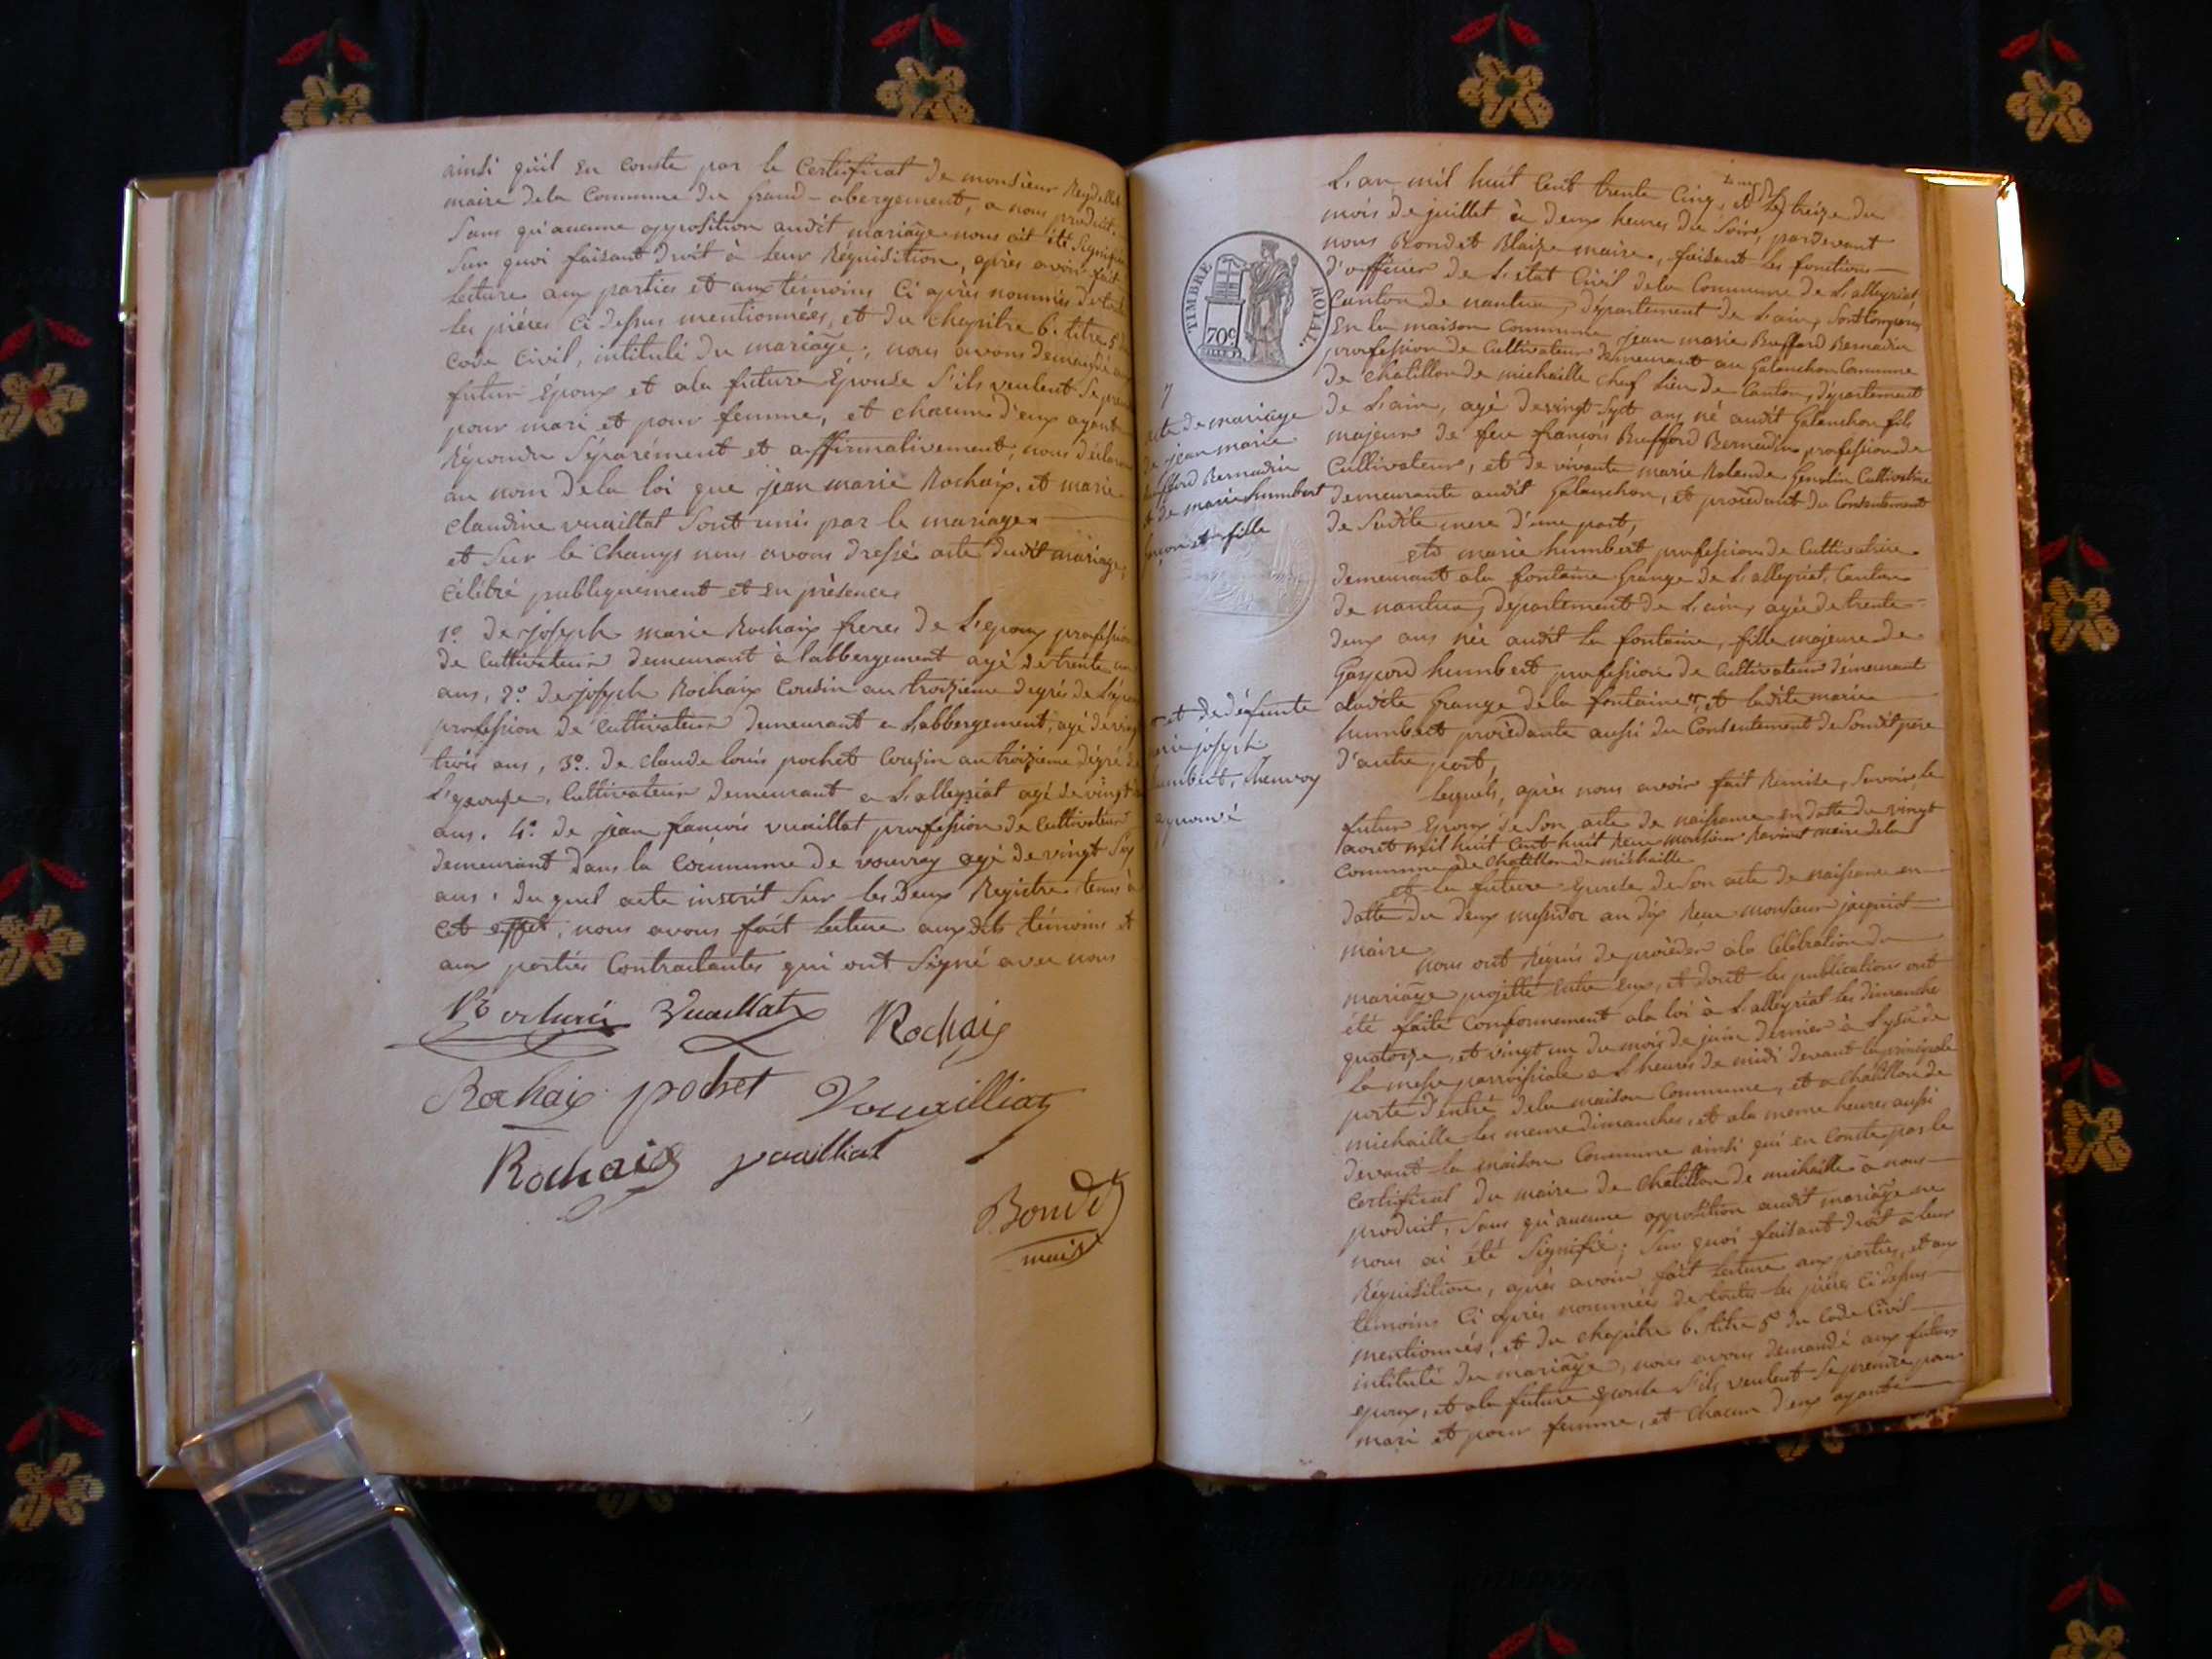 ainsi qu'il en conste par le Certificat de monsieur Reydellet
maire de la Commune du grand-abergement, a nous produit,
Sans qu'aucune opposition audit mariage nous ait été Signifiée
Sur quoi faisant droit à leur Réquisition, après avoir fait
Lecture aux parties et aux témoins Ci après nommés de toutes
les pièces Ci dessus mentionnées, et du chapitre 6. titre 5
Code Civil, intitulé du mariage; nous avons demandé aux
futur Epoux et ala future Epouse S'ils veulent Se prendre
pour mari et pour femme, et chacun d'eux ayant
Répondu Séparément et affirmativement, nous déclarons
au nom de la loi que jean marie Rochaix, et marie
Claudine vuaillat Sont unis par le mariage
et Sur le Champs nous avons dressé acte dudit mariage,
Célébré publiquement et en présence
1º. De joseph marie Rochaix freres de L'epoux profession
de Cultivateur demeurant à labbergement agé de trente un
ans, 2º. de joseph Rochaix Cousin au troisieme degrés de L'époux
profession de Cultivateur demeurant a Labbergement, agé de vingt
trois ans, 3º. de claude louis pochet Cousin au troisieme dégré de
L'epouse, Cultivateur demeurant a Lalleyriat agé de vingt
ans. 4º. de jean françois vuaillat profession de Cultivateur
demeurant dans la Commune de vouvray agé de vingt Six
ans. du quel acte inscrit Sur les Deux Registre tenus à
Cet effet, nous avons fait Lecture auxdits témoins et
aux parties Contractantes qui ont Signé avec nous
Vuaillat Rochaix
Rochaix pochet Vouailliat
Rochaix vuailliat
Bondet
maire
L'an mil huit Cent trente Cinq, et le treize du
mois de juillet à deux heures du Soire, pardevant
nous Bondet Blaize maire, faisant les fonctions
d'officier de L'état Civil dela Commune de Lalleyriat,
Canton de nantua, Département de L'ain, Sont Comparu
En la maison Commune jean marie Buffard Bernadin
profession de Cultivateur demeurant au Galanchon Commune
de chatillon de michaille chef Lieu de Canton, département
de L'ain, agé de vingt Sept ans, né audit Galanchon fils
majeur de feu françois Buffard Bernadin profession de
Cultivateur, et de vivante marie Rolande Gendin Cultivatrice
demeurante audit Galanchon, et procédant du Consentement
de Sadite mere d'une part,
et marie humbert profession de Cultivatrice
demeurant ala fontaine Grange de Lalleyriat, Canton
de nantua, département de L'ain, agée de trente
deux ans née audit La fontaine, fille majeure de
Gaspard humbert profession de Cultivateur démeurant
aladite Grange dela fontaine, et ladite marie
humbert procédante aussi du Consentement de Sondit pere
d'autre part,
Lesquels, après nous avoir fait Remise, Savoir, le
futur Epoux de Son acte de naissance en datte du vingt
aoret mil huit Cent huit Reçu monsieur Ravinet maire dela
Commune de chatillon de michaille
et la future Epouse de Son acte de naissance en
datte du deux messidor an dix Reçu monsieur jacquinot
maire
nous ont Réquis de procéder ala Célébration du
mariage projetté entre eux, et dont les publications ont
été faite Conformement ala loi à Lalleyriat les dimanche
quatorze, et vingt un du mois de juin dernier à L'issue de
La messe parroissiale a L'heures de midi devant la principale
porte d'entré dela maison Commune, et a chatillon de
michaille les meme dimanches, et ala meme heures aussi
devant la maison Commune ainsi qui en Conste par le
Certificat du maire de chatillon de michaille à nous
produit, Sans qu'aucune opposition audit mariage ne
nous ai été Signifié; Sur quoi faisant droit à leur
Réquisition, après avoir fait Lecture aux parties, et aux
témoins Ci après nommées de toutes les pièces Ci dessus
mentionnés, et du chapitre 6. titre 5 du Code Civil
intitulé du mariage, nous avons demandé aux futurs
epoux, et ala future Epouse S'ils veulent Se prendre pour
mari et pour femme, et chacun d'eux ayant
TIMBRE ROYAL.
70c
7
acte de mariage
de jean marie
Buffard Bernadin
et de marie humbert
garçon et fille
et de défunte
marie joseph
humbert,
approuvé